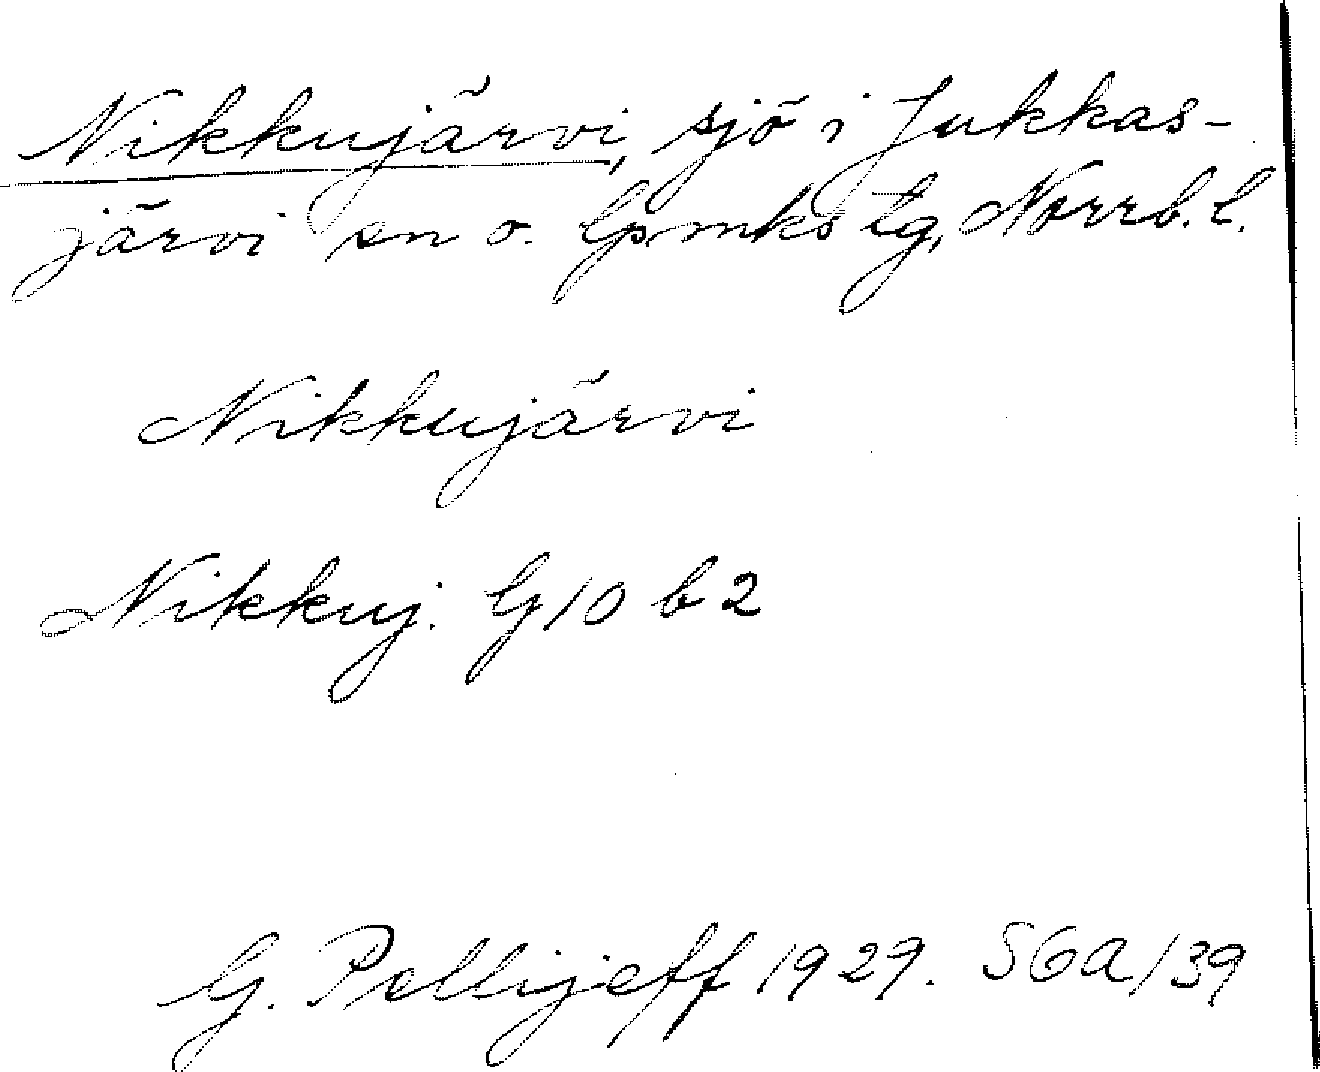 Nikkujärvi, sjö i Jukkas-
järvi sn o. lpmks tg, Norrb. l.
Nikkujärvi
Nikkuj. G 10 b 2
G. Pellijeff 1929. SGA/39